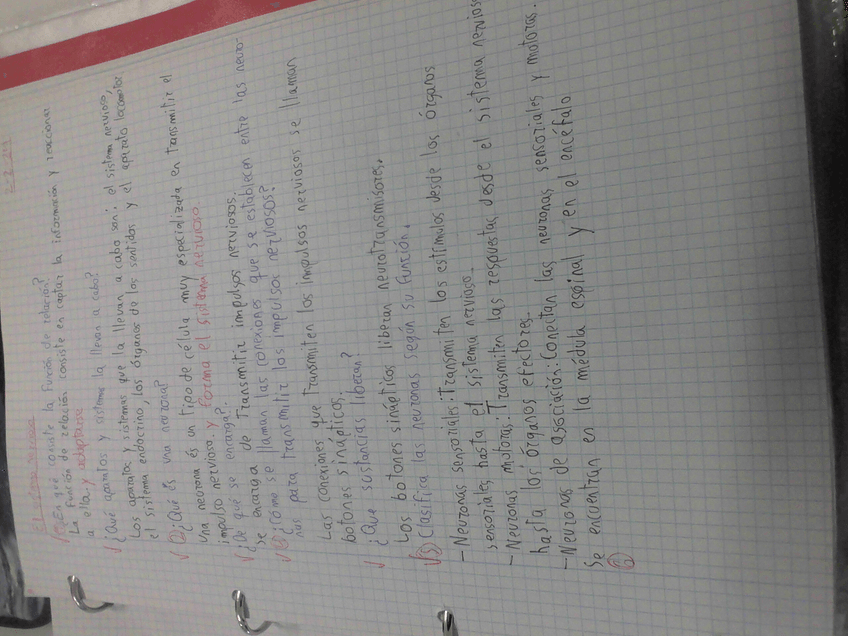 El sistema nervioso
1) ¿En qué consiste la función de relación?
La función de relación consiste en captar la información y reaccionar
a ella y adaptarse
¿Qué aparatos y sistemas la llevan a cabo?
Los aparatos y sistemas que la llevan a cabo son: el sistema nervioso,
el sistema endocrino, los órganos de los sentidos y el aparato locomotor
2) ¿Qué es una neurona?
Una neurona és un tipo de célula muy espacializada en transmitir el
impulso nervioso. y forma el sistema nervioso
¿De qué se encarga?
se encarga de transmitir impulsos nerviosos.
¿Cómo se llaman las conexiones que se establecen entre las neuro-
nas para transmitir los impulsos nerviosos?
Las conexiones que transmiten los impulsos nerviosos se llaman
botones sinápticos.
¿Que sustancias liberan?
Los botones sinápticos liberan neurotransmisores.
5) Clasifica las neuronas según su función.
- Neuronas sensoriales: Transmiten los estímulos desde los órganos
sensoriales hasta el sistema nervioso.
- Neuronas motoras: Transmiten las respuestas desde el sistema nervioso
hasta los órganos efectores.
- Neuronas de asociación: Conectan las neuronas sensoriales y motoras.
Se encuentran en la médula espinal y en el encéfalo